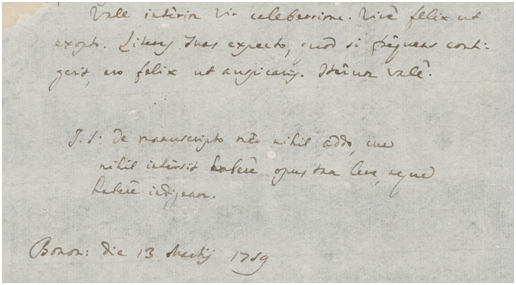 Vale interim Vir celeberrime. Vive felix ut
exopto. Literas tuas expecto, quod si frequens conti-
gerit, ero felix ut
Iterum vale.
P.S. De manuscripto meo nihil addo, me
nihil intersit habere opus tam leve, neque
habere
Bonon: die 13 Martij 1759